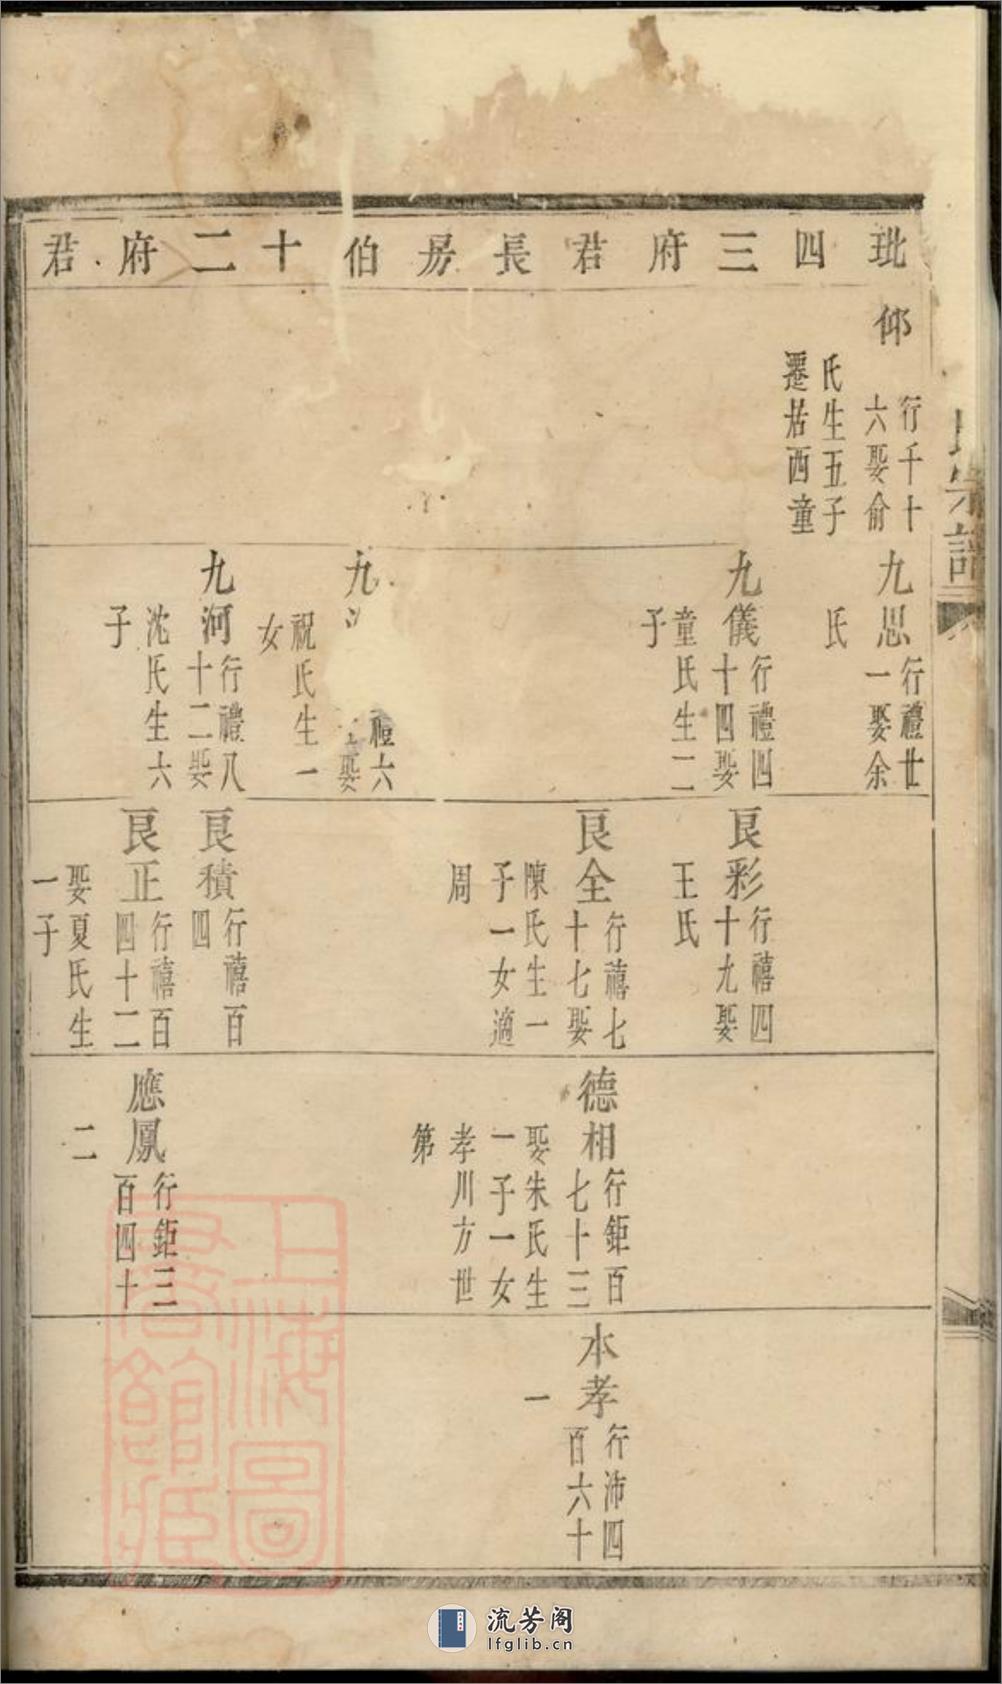 玭四三府君長房伯十二府君
仰
行千十
六娶俞
氏生五子
遷居西童
九思
行禮廿
一娶余
氏
九儀
行禮四
十四娶
童氏生二
子
九
禮六
娶
祝氏生一
女
九河
行禮八
十二娶
沈氏生六
子
良彩
行禧四
十九娶
王氏
良全
行禧七
十七娶
陳氏生一
子一女適
周
良積
行禧百
四
良正
行禧百
四十二
娶夏氏生
一子
德相
行鉅百
七十三
娶朱氏生
一子一女
孝川方世
第
應鳳
行鉅三
百四十
二
本孝
行沛四
百六十
一
宗譜
上海圖書館藏
流芳阁
lfglib.cn